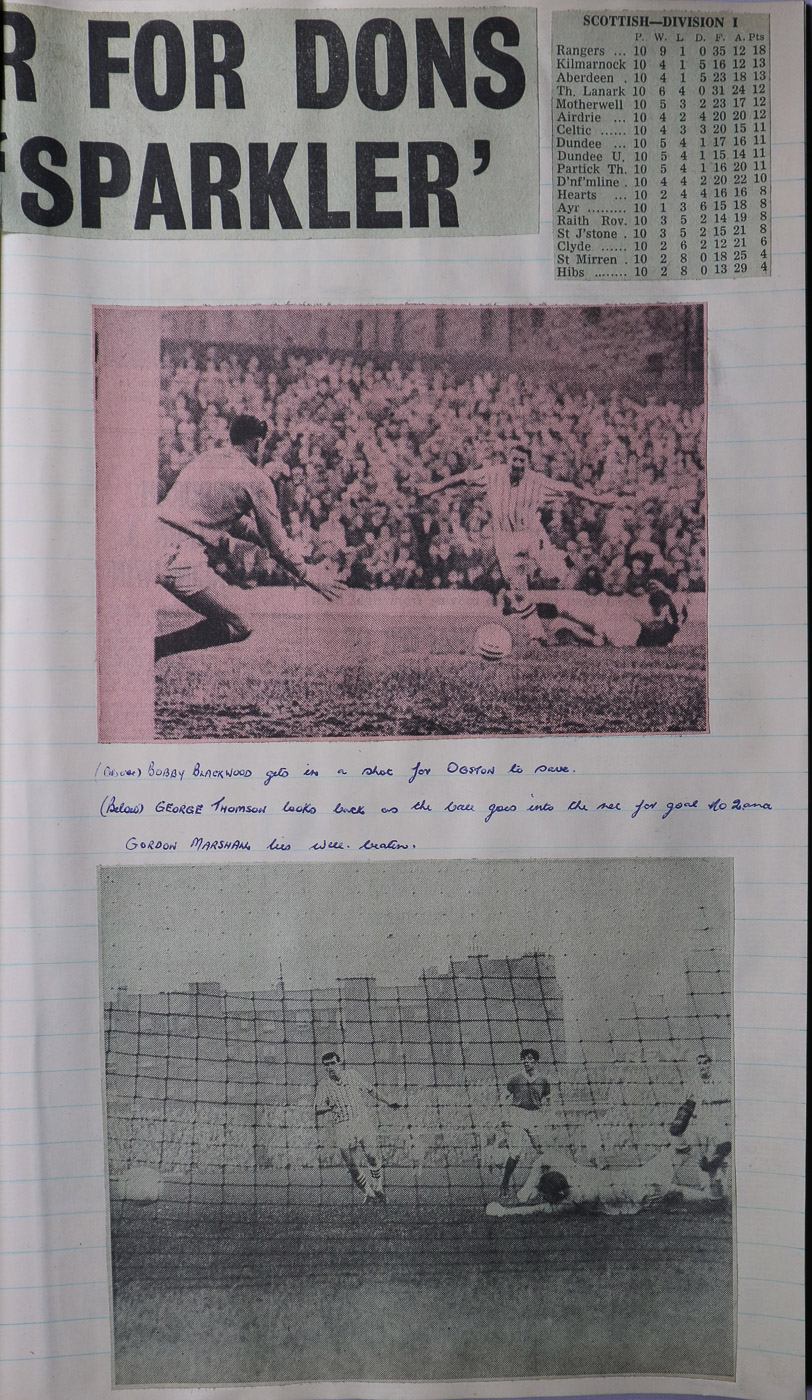 R FOR DONS
‘SPARKLER’
SCOTTISH—DIVISION I
P. W. L D. F. A. Pts
Rangers ... 10 9 1 0 35 12 18
Kilmarnock 10 4 1 5 16 12 13
Aberdeen . 10 4 1 5 23 18 13
Th. Lanark 10 6 4 0 31 24 12
Motherwell 10 5 3 2 23 17 12
Airdrie ... 10 4 2 4 20 20 12
Celtic ...... 10 4 3 3 20 15 11
Dundee ... 10 5 4 1 17 16 11
Dundee U. 10 5 4 1 15 14 11
Partick Th. 10 5 4 1 16 20 11
D'nf'mline . 10 4 4 2 20 22 10
Hearts ... 10 2 4 4 16 16 8
Ayr ......... 10 1 3 6 15 18 8
Raith Rov. 10 3 5 2 14 19 8
St J'stone . 10 3 5 2 15 21 8
Clyde ...... 10 2 6 2 12 21 6
St Mirren . 10 2 8 0 18 25 4
Hibs ........ 10 2 8 0 13 29 4
(Above) BOBBY BLACKWOOD gets in a shot for OGSTON to save.
(Below) GEORGE THOMSON looks back as the ball goes into the net for goal No 2 and
GORDON MARSHALL lies well beaten.